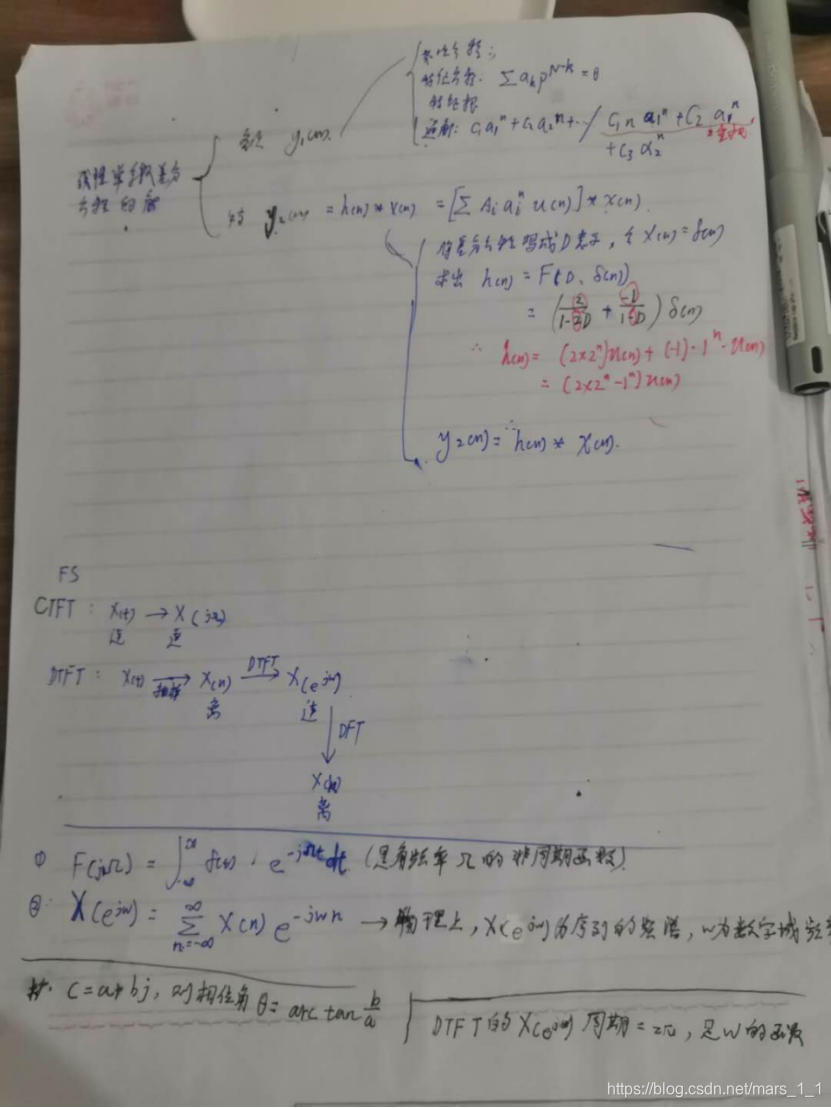 齐次方程:
特征方程: ∑ aₖ p^(N-k) = 0
特征根
通解: C₁a₁ⁿ + C₂a₂ⁿ + … / C₁n a₁ⁿ + C₂ a₁ⁿ
+ C₃ α₂ⁿ
y₁(n).
线性常系数差分
方程的解
特 y₂(n) = h(n) * x(n) = [∑ Aᵢ aᵢⁿ u(n)] * x(n)
将差分方程写成D算子, 令 x(n) = δ(n)
求出 h(n) = F(D, δ(n))
= (2/(1-2D) + -1/(1-D)) δ(n)
∴ h(n) = (2×2ⁿ)u(n) + (-1)·1ⁿ·u(n)
= (2×2ⁿ-1ⁿ)u(n)
y₂(n) = h(n) * x(n).
FS
CTFT: x(t) → X(jΩ)
连 连
DTFT: x(t) → 抽样 x(n) → DTFT X(e^jw)
离 连
↓ DFT
X(k)
离
① F(jΩ) = ∫_-∞^∞ f(t) · e^-jΩt dt (是角频率Ω的非周期函数)
② X(e^jw) = ∑_n=-∞^∞ x(n) e^-jwn → 物理上, X(e^jw)为序列的频谱, w为数字域频率
C = a + bj, 则相位角 θ = arc tan b/a
DTFT的X(e^jw) 周期 = 2π, 是w的函数
https://blog.csdn.net/mars_1_1